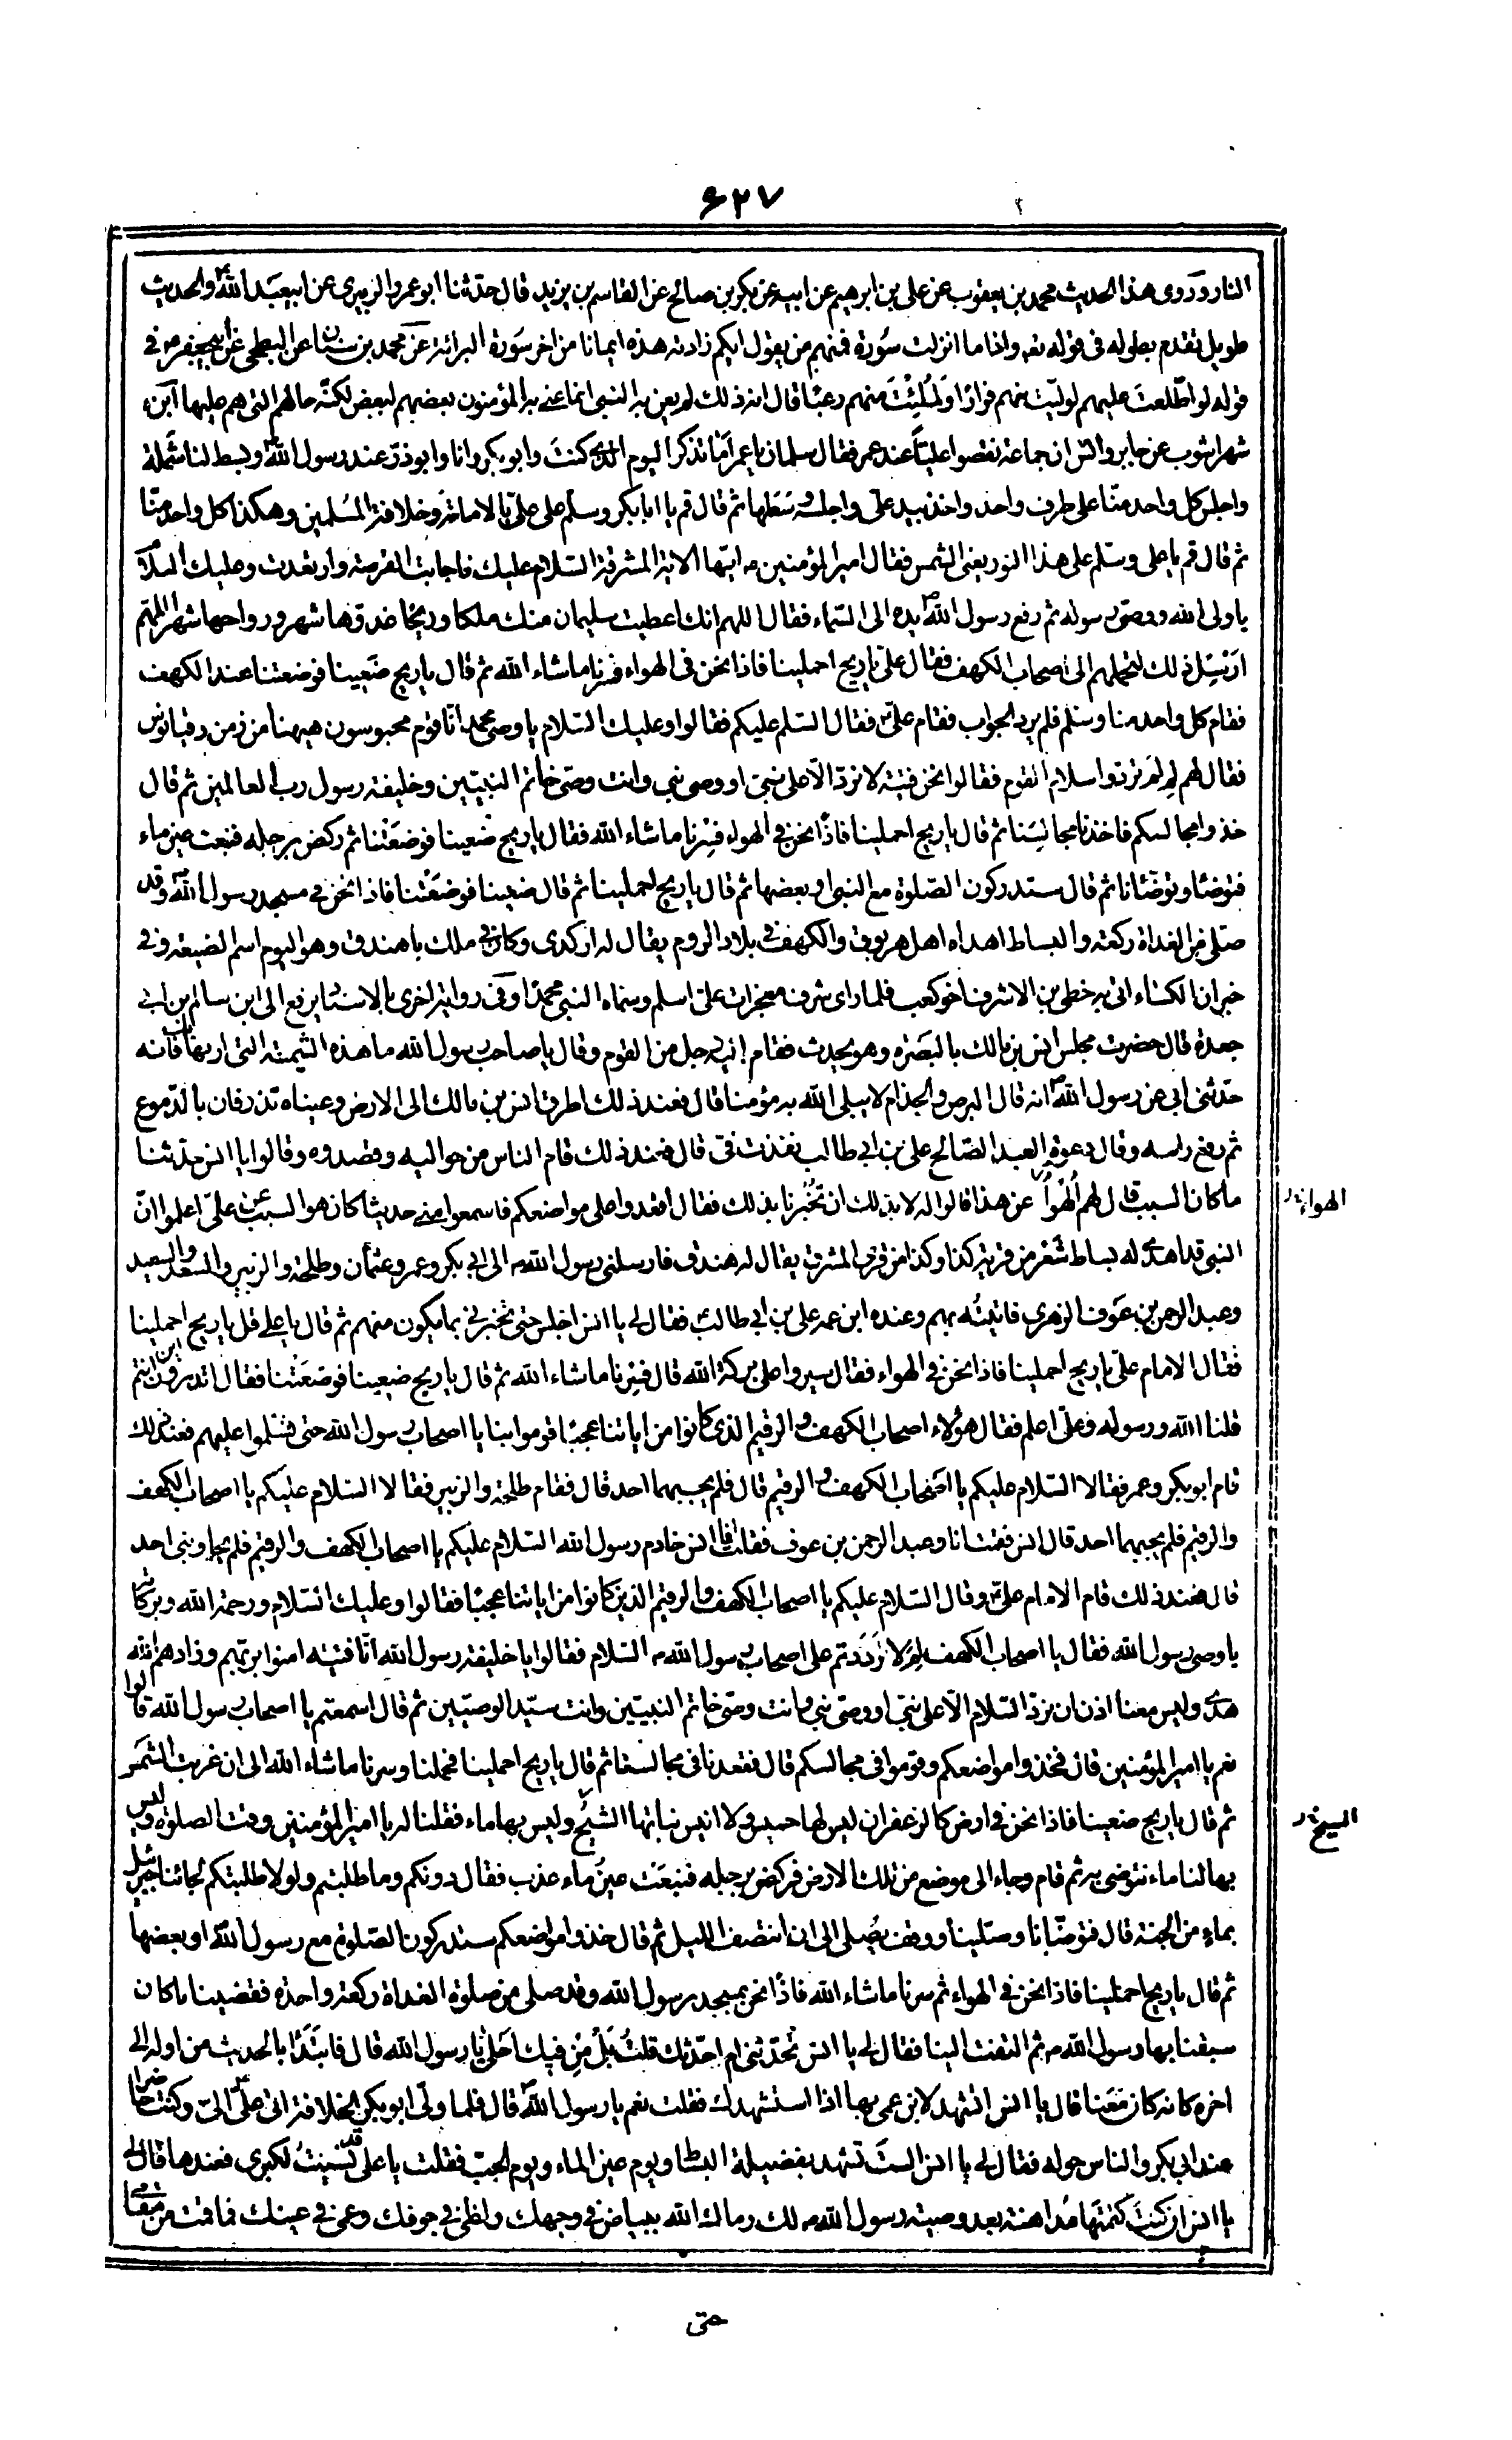 ٦٢٧
النار وروى هذا الحديث محمد بن يعقوب عن على بن ابرهيم عن ابيه عن بكر بن صالح عن القاسم بن يزيد قال حدثنا ابو عمرو الزبيرى عن ابيعبد الله والحديث
طويل تقدم بطوله فى قوله تعـ واذا ما انزلت سورة فمنهم من يقول ايكم زادته هذه ايمانا من اخر سورة البرائة عن محمد بن سنان عن البطيخى عن ابيجعفر فى
قوله لو اطّلعت عليهم لولّيت منهم فرارًا ولملئت منهم رعبًا قال ان ذلك لم يعن به النبى انما عنى به المؤمنون بعضهم لبعض لكنّه حالهم التى هم عليها ابن
شهراشوب عن جابر وانس ان جماعة تنقصوا عليّاً عند عمر فقال سلمان يا عمر اما تذكر اليوم الذى كنت وابو بكر وانا وابو ذرّ عند رسول الله وبسط لنا شملة
واجلس كل واحد منّا على طرف واحد واخذ بيد علىّ واجلسه وسطها ثم قال قم يا ابا بكر وسلّم على علىّ بالامامة وخلافة المسلمين وهكذا كل واحد منّا
ثم قال قم يا على وسلّم على هذا النور يعنى الشمس فقال امير المؤمنين ايّتها الاية المشرقة السّلام عليك فاجابت القرصة وارتعدت وعليك السلام
يا ولى الله ووصىّ رسوله ثم رفع رسول الله يده الى السّماء فقال اللهم انك اعطيت سليمان منك ملكا وريحًا غدوّها شهر ورواحها شهر اللهم
ارسل ذلك لتحملهم الى اصحاب الكهف فقال علىّ يا ريح احملينا فاذا نحن فى الهواء فسرنا ما شاء الله ثم قال يا ريح ضعينا فوضعتنا عند الكهف
فقام كل واحد منا وسلم فلم يرد الجواب فقام علىّ فقال السّلم عليكم فقالوا وعليك السّلام يا وصى محمد انّا قوم محبوسون هيهنا من زمن دقيانوس
فقال لهم لِمَ لَمْ تردوا سلام القوم فقالوا نحن فتية لا نردّ الّا على نبىّ او وصى نبى وانت وصىّ خاتم النبيّين وخليفة رسول رب العالمين ثم قال
خذوا مجالسكم فاخذنا مجالسنا ثم قال يا ريح احملينا فاذًا نحن فى الهواء فسِرنا ما شاء الله فقال يا ريح ضعينا فوضعَتنا ثم ركض برجله فنبعت عين ماء
فتوضّا وتوضّانا ثم قال ستدركون الصّلوة مع النبى او بعضها ثم قال يا ريح احملينا ثم قال ضعينا فوضعَتْنا فاذا نحن فى مسجد رسول الله وقد
صلّى من الغداة ركعة والبساط اهداه اهل هربوق والكهف فى بلاد الروم يقال له اركدى وكان فى ملك باهندق وهو اليوم اسم الضيعة وفى
خبر ان الكساء اتى به خطى بن الاشرف اخو كعب فلما راى شرف معجزات علىّ اسلم وسماه النبى محمدًا وفى رواية اخرى بالاسناد يرفع الى ابن سالم بن ابى
جعدة قال حضرت مجلس انس بن مالك بالبصره وهو يحدث فقام اليه رجل من القوم وقال يا صاحب رسول الله ما هذه الشيمة التى اريها بك فانه
حدّثنى ابى عن رسول الله انه قال البرص والجذام لا يبلى الله به مؤمنا قال فعند ذلك اطرق انس بن مالك الى الارض وعيناه تذرفان بالدّموع
ثم رفع راسه وقال دعوة العبد الصّالح على بن ابى طالب نفذت فىّ قال فعند ذلك قام الناس من حواليه وقصدوه وقالوا يا انس حدّثنا
ما كان السبب قال لهم الهوا عن هذا قالوا له لا بد لك ان تخبرنا بذلك فقال اقعدوا على مواضعكم فاسمعوا منى حديثا كان هو السبب عن علىّ اعلموا انّ
الهوا
النبى قد اهدى له بساط شعر من قرية كذا وكذا من قرى المشرق يقال له هندف فارسلنى رسول الله الى ابى بكر وعمر وعثمان وطلحة والزبير والسعد والسعيد
وعبد الرحمن بن عوف الزهرى فاتيتُه بهم وعنده ابن عمه على بن ابى طالب فقال لى يا انس اجلس حتى تخبرنى بما يكون منهم ثم قال يا على قل يا ريح احملينا
فقال الامام علىّ يا ريح احملينا فاذا نحن فى الهواء فقال سيروا على بركة الله قال فسرنا ما شاء الله ثم قال يا ريح ضعينا فوضعَتْنا فقال اتدرون اين انتم
قلنا الله ورسوله وعلىّ اعلم فقال هؤلاء اصحاب الكهف والرقيم الذى كانوا من اياتنا عجبًا قوموا بنا يا اصحاب رسول الله حتى نسلّموا عليهم فعند ذلك
قام ابو بكر وعمر فقالا السّلام عليكم يا اصحاب الكهف والرقيم قال فلم يجيبهما احد قال فقام طلحة والزبير فقالا السّلام عليكم يا اصحاب الكهف
والرقيم فلم يجيبهما احد قال انس فقمت انا وعبد الرحمن بن عوف فقلت انا انس خادم رسول الله السّلام عليكم يا اصحاب الكهف والرقيم فلم يجاوبنى احد
قال فعند ذلك قام الامام علىّ وقال السّلام عليكم يا اصحاب الكهف والرقيم الذين كانوا من اياتنا عجبًا فقالوا وعليك السّلام ورحمة الله وبركاته
يا وصى رسول الله فقال يا اصحاب الكهف لم لا رَدَدتم على اصحاب رسول الله السّلام فقالوا يا خليفة رسول الله انّا فتية امنوا بربّهم وزادهم الله
هدى وليس معنا اذن ان نردّ السّلام الّا على نبىّ او وصى نبى وانت وصىّ خاتم النبيين وانت سيّد الوصيّين ثم قال اسمعتم يا اصحاب رسول الله قالوا
نعم يا امير المؤمنين قال فخذوا مواضعكم وقوموا فى مجالسكم قال فقعدنا فى مجالسنا ثم قال يا ريح احملينا فحملنا وسرنا ما شاء الله الى ان غربت الشمس
ثم قال يا ريح ضعينا فاذا نحن فى ارض كالزعفران ليس لها حسيس ولا انيس نباتها الشيخ وليس بها ماء فقلنا له يا امير المؤمنين وقت الصلوة وليس
بها لنا ماء نتوضى به ثم قام وجاء الى موضع من تلك الارض فركض برجله فنبعَت عينُ ماء عذب فقال دونكم وما طلبتم ولولا طلبتكم لجائنا جبرئيل
بماءٍ من الجنة قال فتوضّانا وصلّينا ووقف يُصلى الى ان انتصف الليل ثم قال خذوا مواضعكم ستدركون الصّلوة مع رسول الله او بعضها
ثم قال يا ريح احملينا فاذا نحن فى الهواء ثم سرنا ما شاء الله فاذًا نحن بمسجد رسول الله وقد صلى من صلوة الغداة ركعة واحدة فقضينا ما كان
سبقنا بها رسول الله ثم التفت الينا فقال لى يا انس تحدّثنى ام احدّثك قلتُ بَلْ مِن فيك احلى يا رسول الله قال فابتَدَا بالحديث من اوله الى
اخره كانه كان معَنا قال يا انس اتشهد لابن عمى بها اذا استشهدك فقلت نعم يا رسول الله قال فلما ولّى ابو بكر الخلافة اتى علىّ الىّ وكنت حاضرا
عند ابى بكر والناس حوله فقال لى يا انس الستَ تشهد بفضيلة البساط ويوم عين الماء ويوم الجبّ فقلت يا على قد نسيتُ لكبرى فعندها قال لى
يا انس ان كنت كتمتَها مُداهنة بعد وصية رسول الله لك رماك الله ببياض فى وجهك ولظى فى جوفك وعمى فى عينك فما قمت من مقامى
حتى